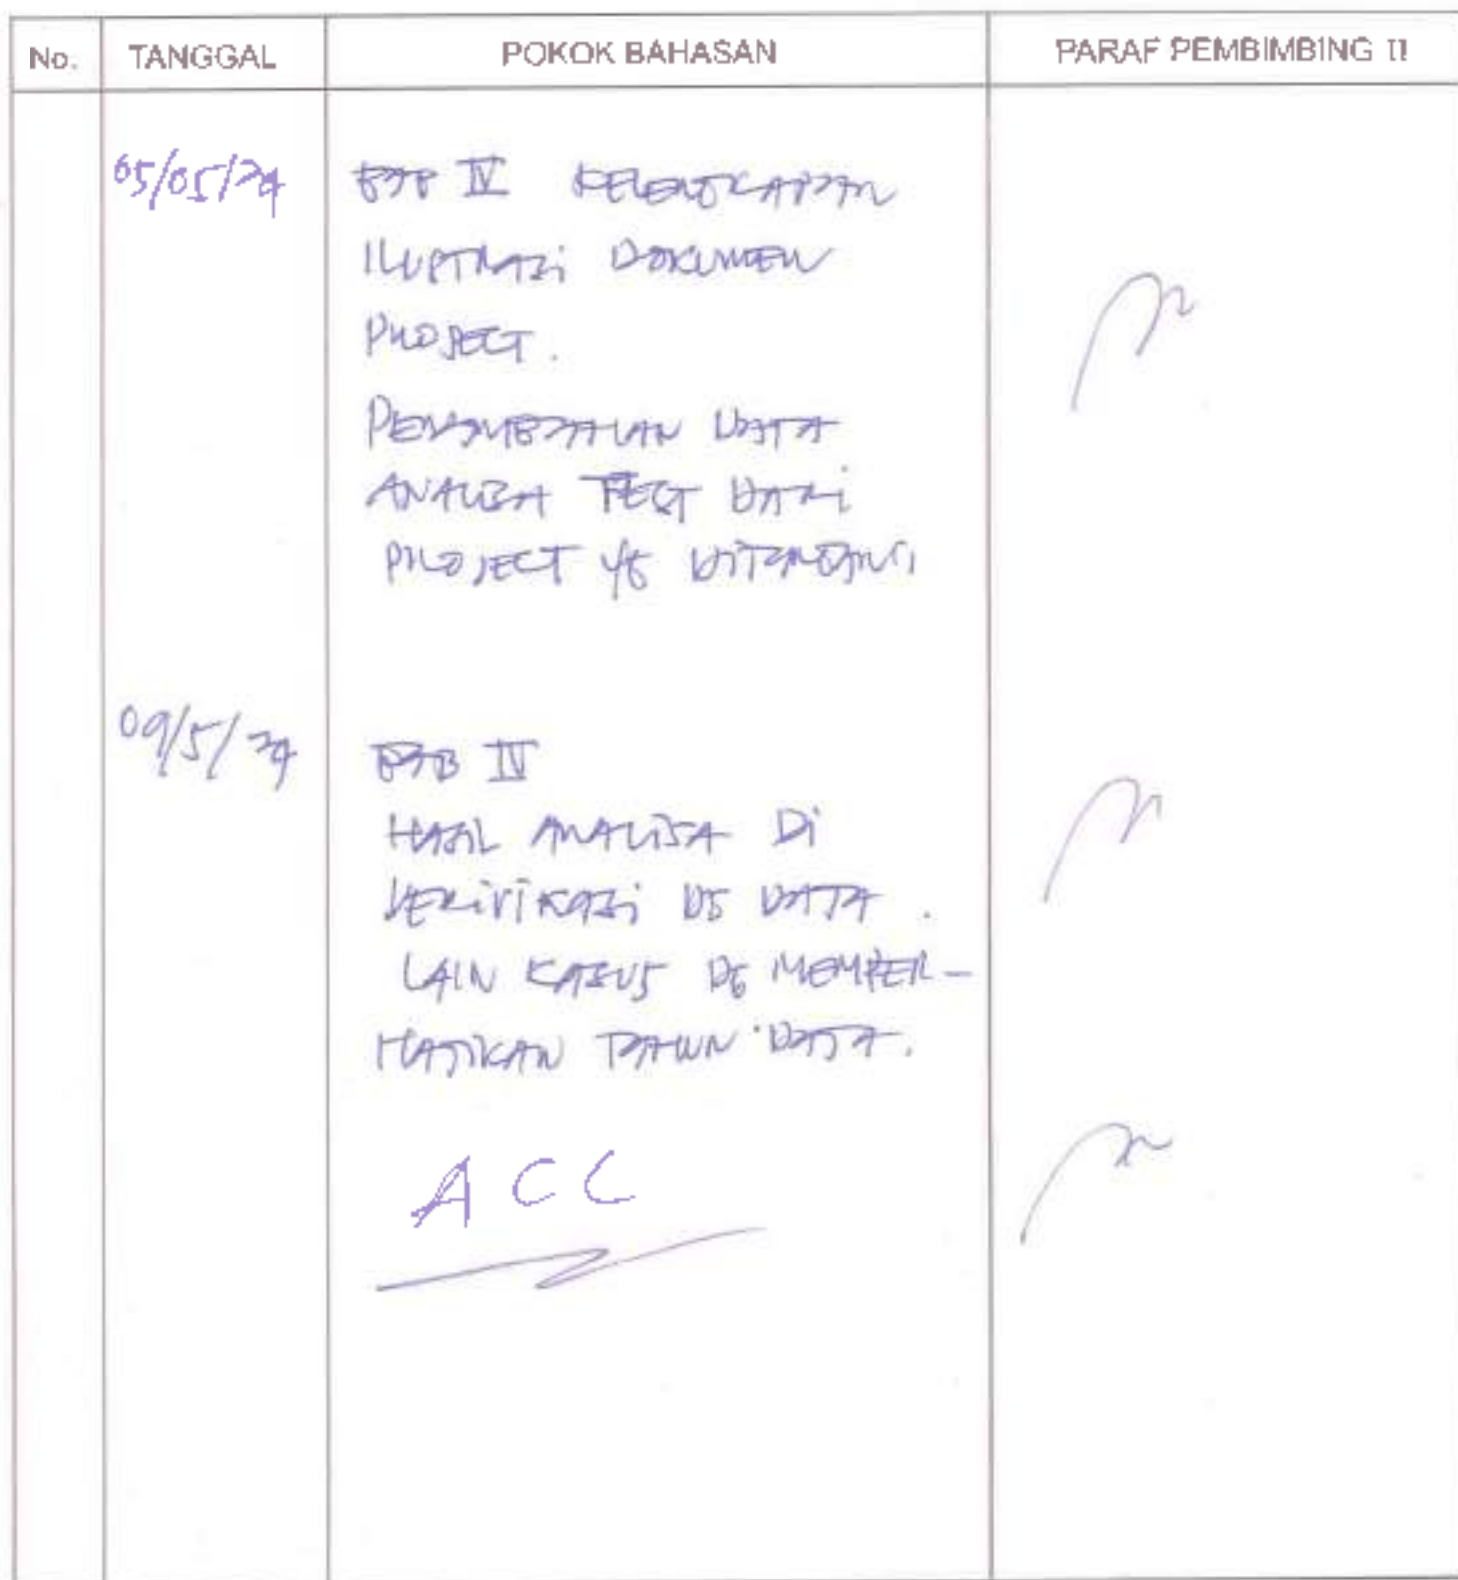 No. TANGGAL POKOK BAHASAN PARAF PEMBIMBING II
05/05/24 BAB IV KELENGKAPAN
ILUSTRASI DOKUMEN
PROJECT.
PENAMBAHAN DATA
ANALISA TEST DARI
PROJECT YG
09/5/24 BAB IV
HASIL ANALISA Di
VERiViKASi DG DATA.
LAIN KASUS DG MEMPER-
HATIKAN TAHUN DATA.
ACC